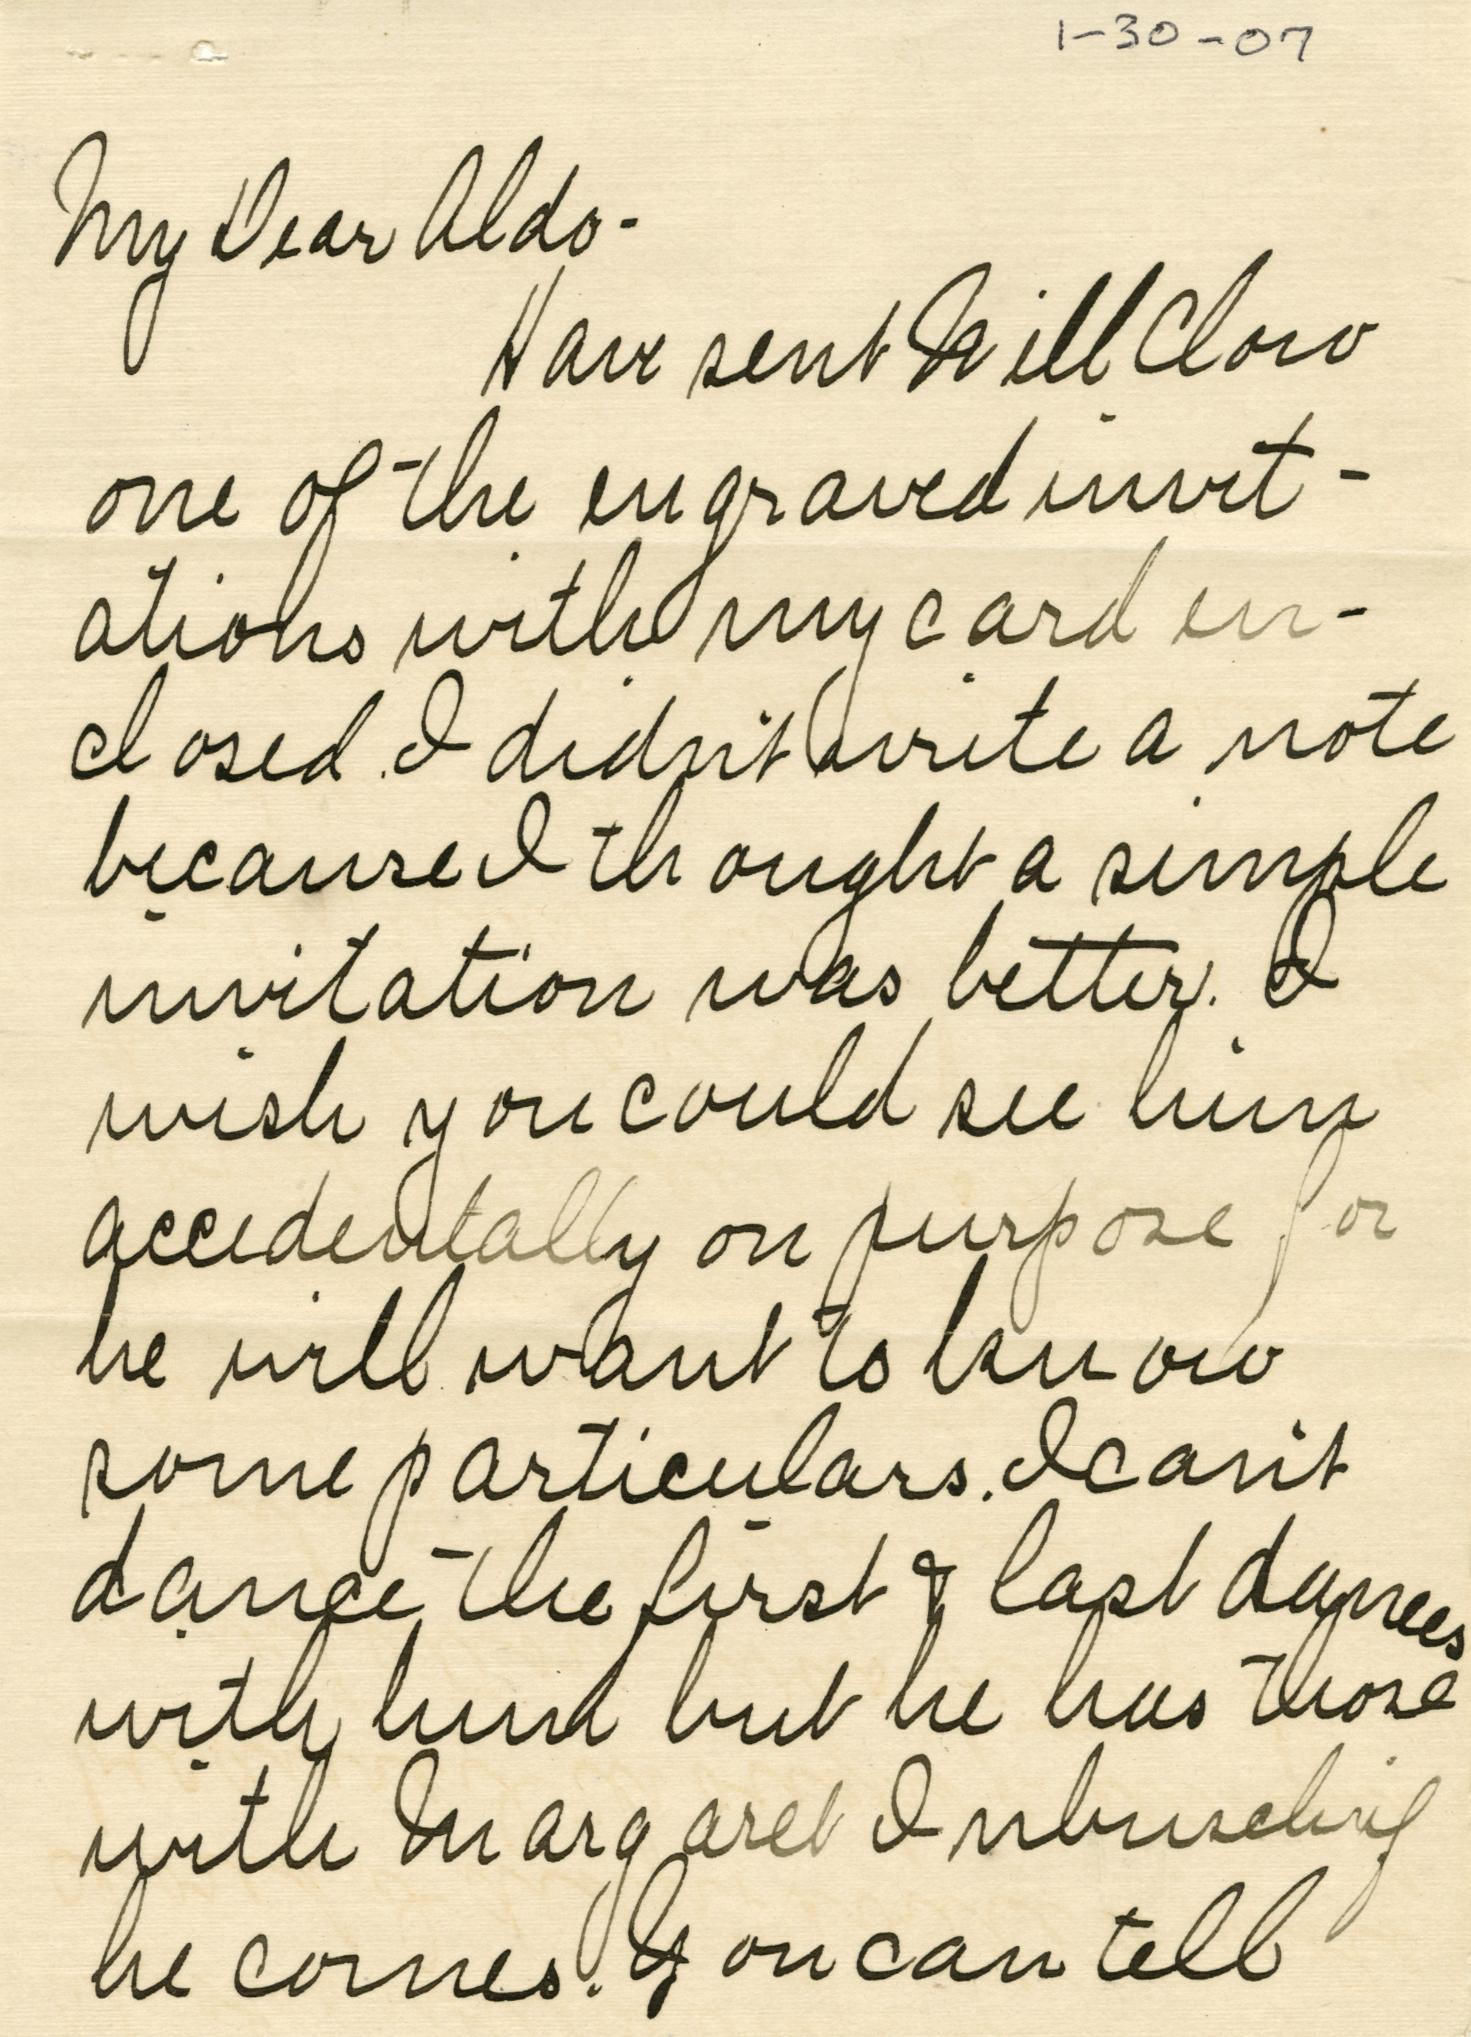 1-30-07
My Dear Aldo-
Have sent Will Clow
one of the engraved invit-
ations with my card en-
closed. I didn't write a note
because I thought a simple
invitation was better. I
wish you could see him
accidentally on purpose for
he will want to know
some particulars. I can't
dance the first & last dances
with him but he has those
with Margaret if
he comes. You can tell